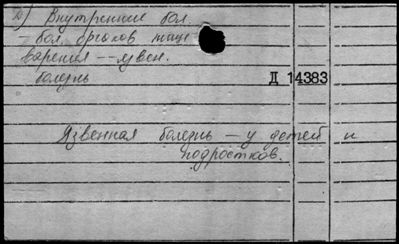 2) Внутренние бол.
- бол. органов пище
варения -- язвен.
болезнь
Д 14383
Язвенная болезнь — у детей и
подростков.